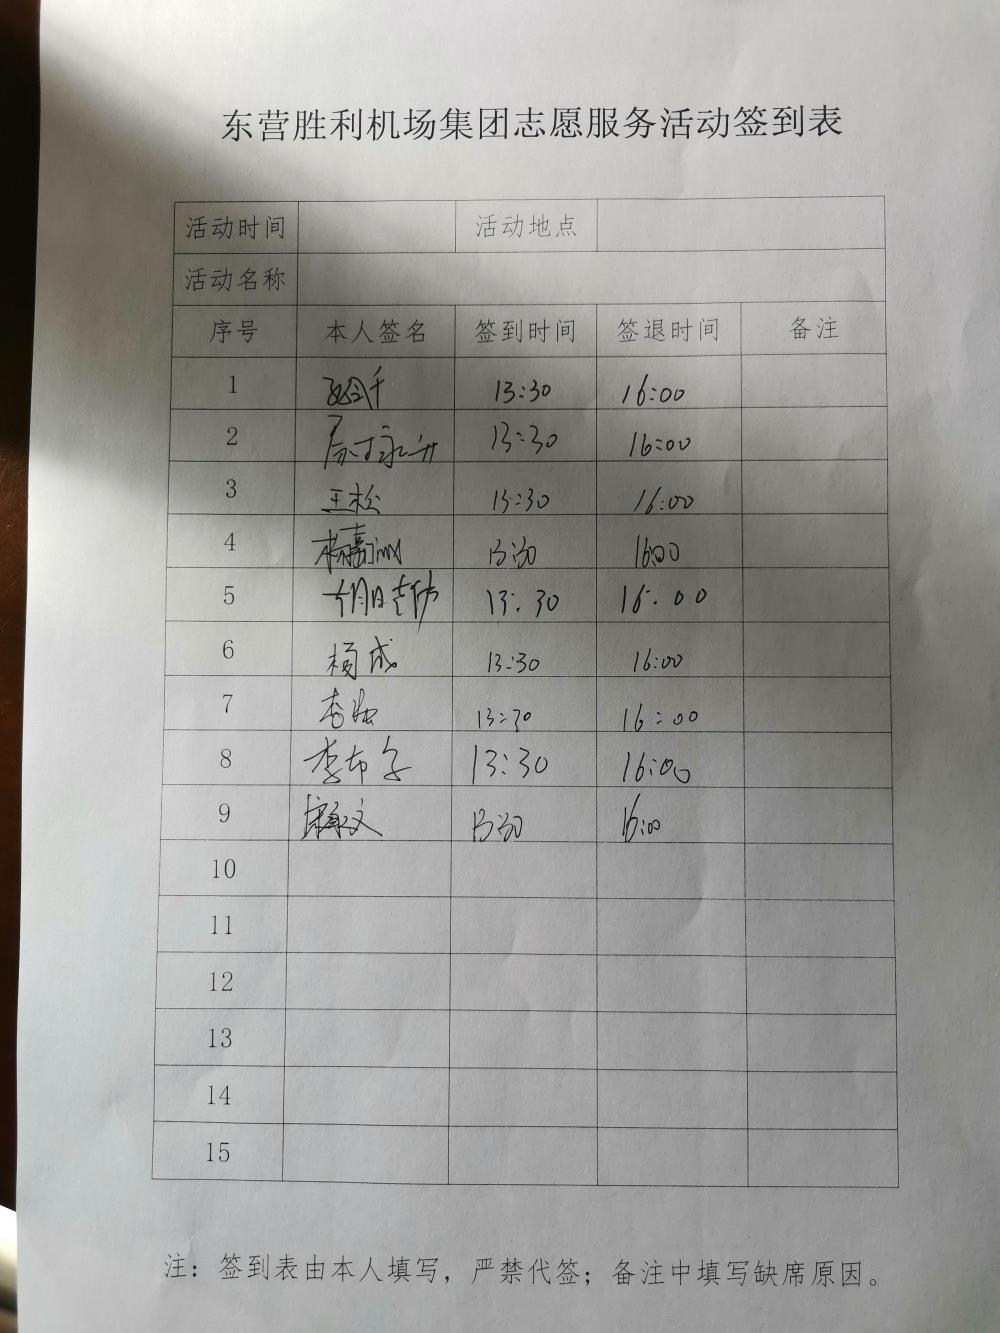 东营胜利机场集团志愿服务活动签到表
活动时间 活动地点
活动名称
序号 本人签名 签到时间 签退时间 备注
1 13:30 16:00
2 13:30 16:00
3 王松 13:30 16:00
4 杨嘉 13:30 16:00
5 13:30 16:00
6 杨成 13:30 16:00
7 李 13:30 16:00
8 李布字 13:30 16:00
9 文 13:30 16:00
10
11
12
13
14
15
注：签到表由本人填写，严禁代签；备注中填写缺席原因。